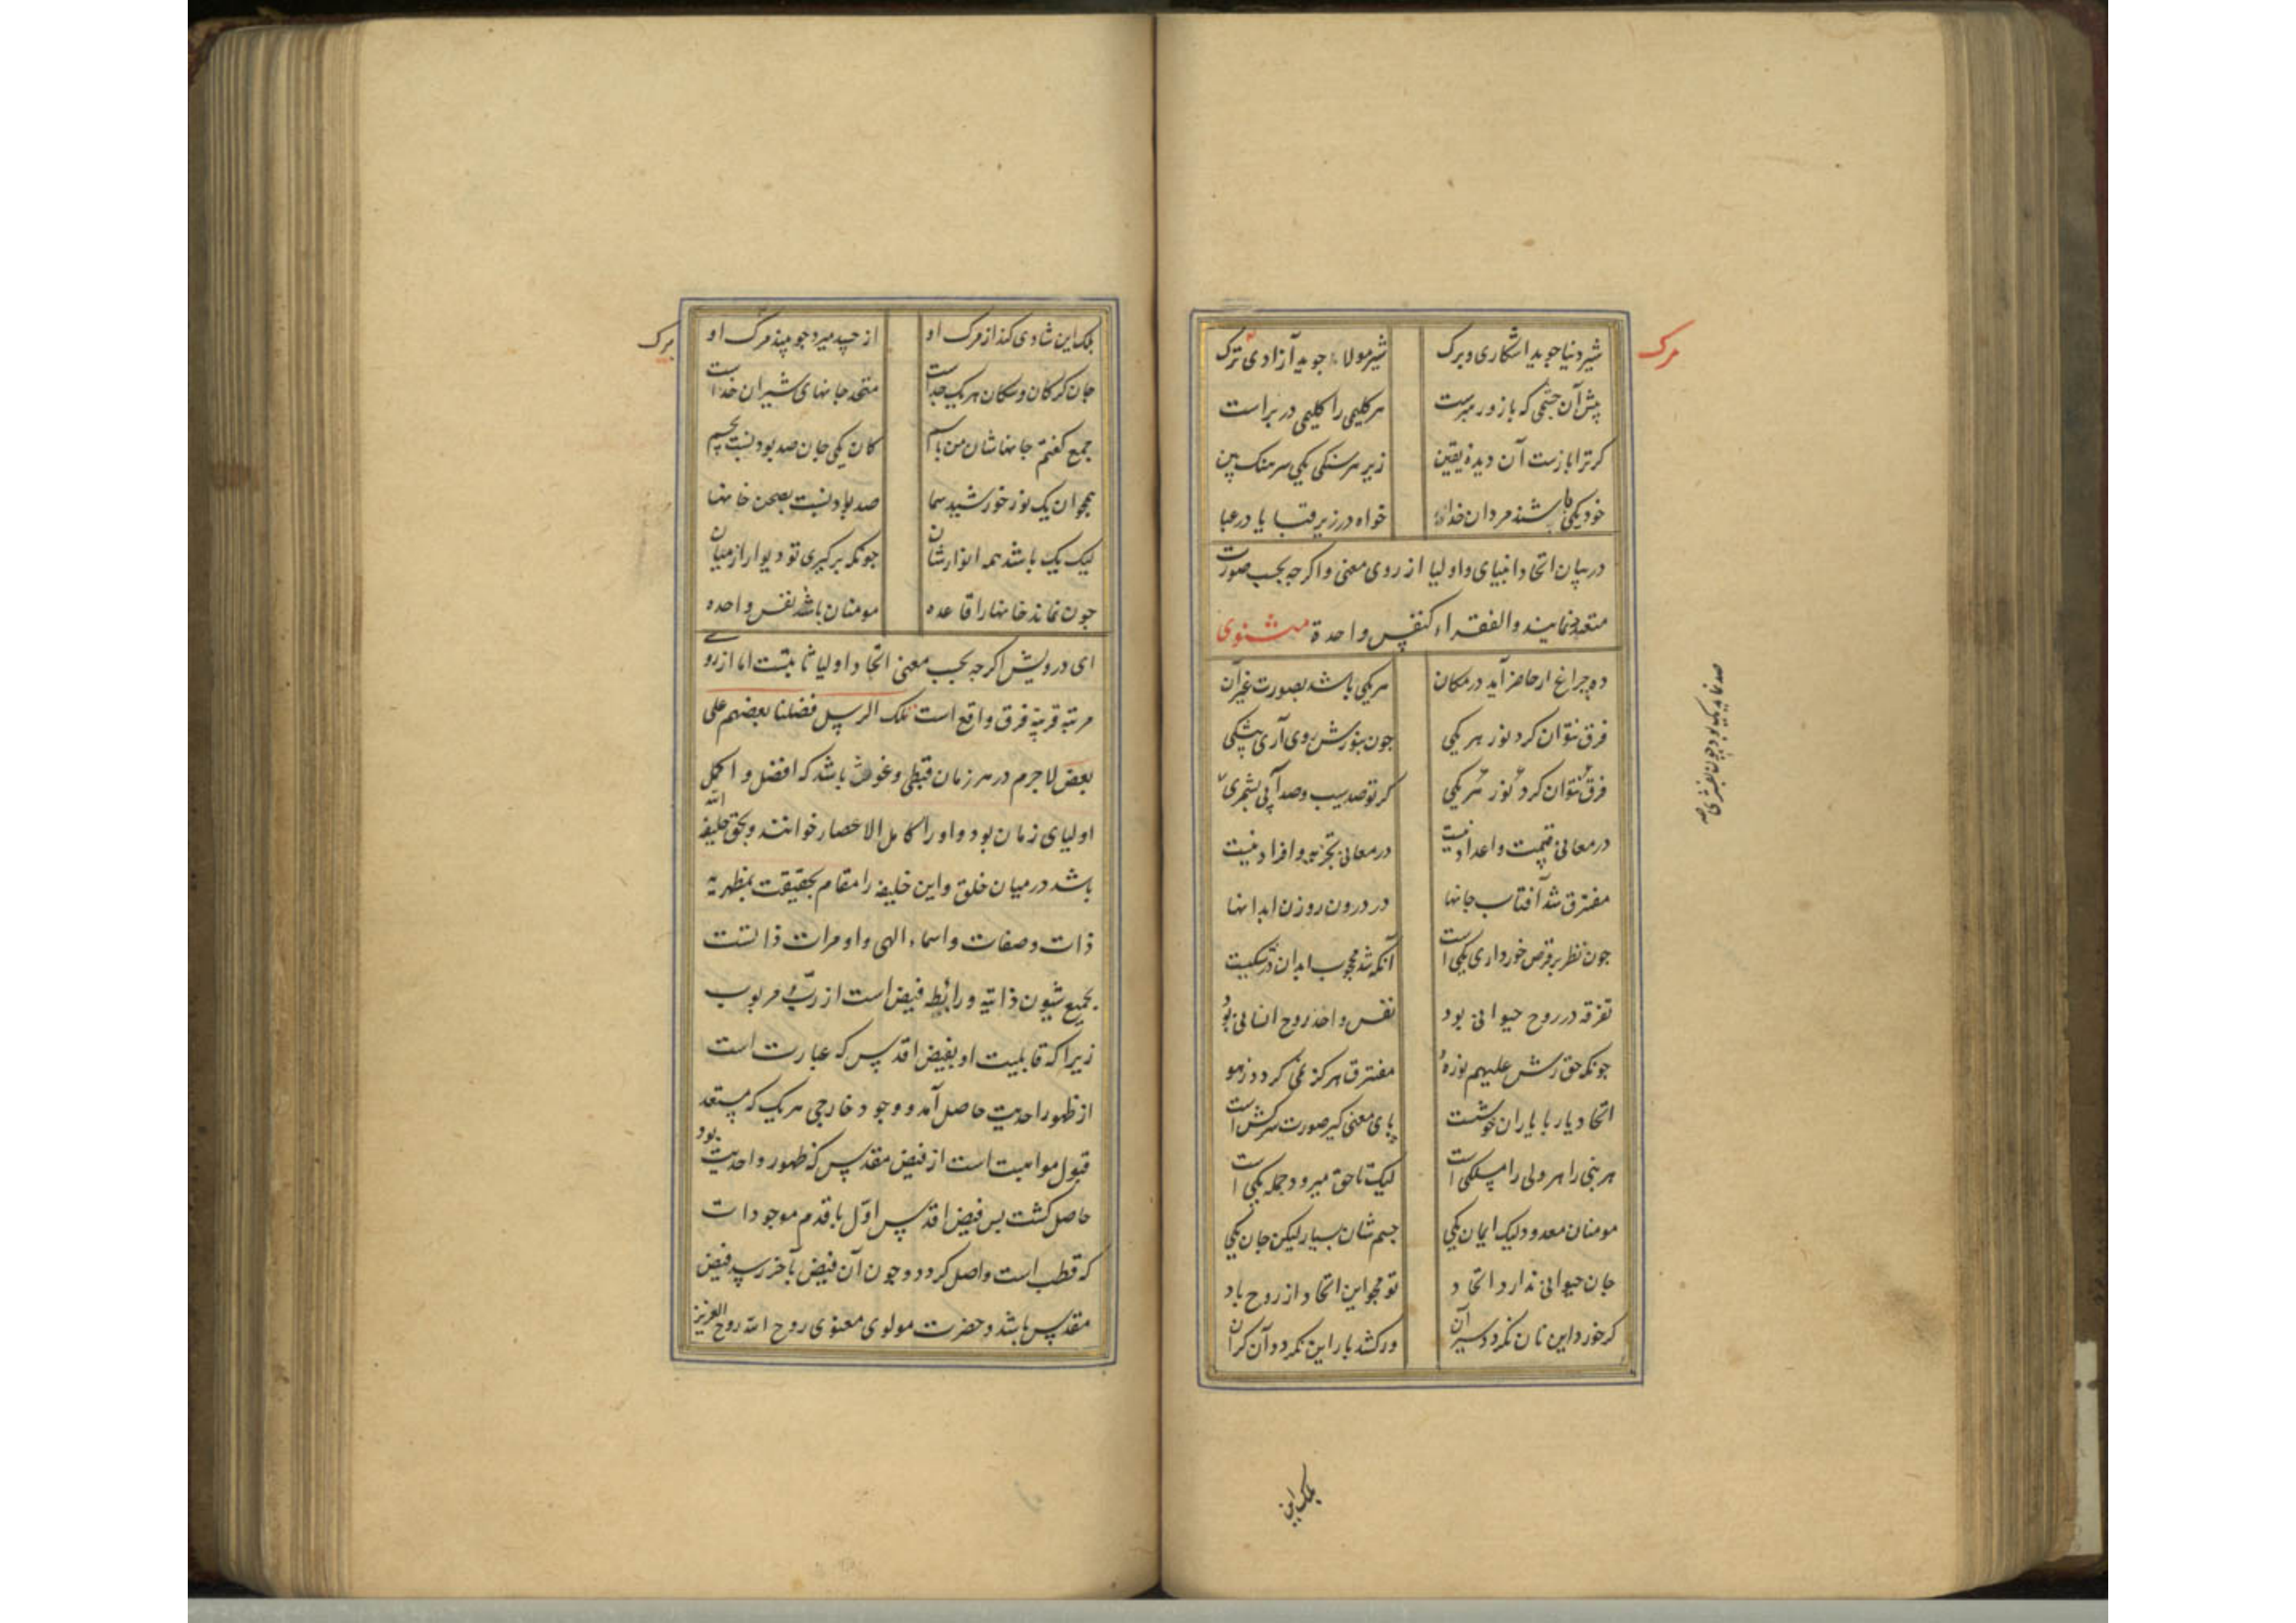 شیر دنیا جوید اشکاری و برک شیر مولا جوید آزادی ترک
مرک
پیش آن چشمی که باز و رهبرست هر کلیمی را کلیمی در بر است
کر ترا بازست آن دیده یقین زیر هر سنکی یکی سرهنک بین
خود یکی باشند مردان خدا خواه در زیر قبا یا در عبا
در بیان اتحاد انبیای و اولیا از روی معنی و اکرچه بحسب صورت
متعدد نمایند والفقراء کنفس واحدة مثنوی
ده چراغ ار حاضر آید در مکان هر یکی باشد بصورت غیر آن
فرق نتوان کرد نور هر یکی چون بنورش روی آری بیشکی
فرق نتوان کرد نور هر یکی کر تو صد سیب و صد آبی بشمری
صد نماید یک بود چون بفشری
در معانی قسمت و اعداد نیست در معانی تجزیه و افراد نیست
مفترق شد آفتاب جانها در درون روزن ابدانها
چون نظر بر قرص خور داری یکی است آنکه شد محجوب ابدان در شکیست
تفرقه در روح حیوانی بود نفس واحد روح انسانی بود
چونکه حق رش علیهم نوره مفترق هرکز نمی کردد ز هو
اتحاد یار با یاران خوشست پای معنی کیر صورت سرکش است
هر نبی را هر ولی را مسلکی است لیک تا حق میرود جمله یکی است
مومنان معدود لیک ایمان یکی جسم شان بسیار لیکن جان یکی
جان حیوانی ندارد اتحاد تو مجو این اتحاد از روح باد
کر خورد این نان نکردد سیر آن ور کشد بار این نکردد آن کران
بلک این
بلک این شادی کند از مرک او از حسد میرد چو بیند مرک او
برک
جان کرکان و سکان هر یک جداست متحد جانهای شیران خداست
جمع کفتم جانهاشان من باسم کان یکی جان صد بود نسبت بجسم
همچو ان یک نور خورشید سما صد بود نسبت بصحن خانها
لیک یک باشد همه انوارشان چونکه برکیری تو دیوار از میان
چون نماند خانها را قاعده مومنان باشند نفس واحده
ای درویش اکرچه بحسب معنی اتحاد اولیا ثابتست اما از روی
مرتبه قربیه فرق واقع است تلک الرسل فضلنا بعضهم علی
بعض لاجرم در هر زمان قطبی و غوث باشد که افضل و اکمل
اولیای زمان بود و او را کامل الاعصار خوانند و بحق خلیفة الله
باشد در میان خلق و این خلیفه را مقام بحقیقت مظهریه
ذات و صفات و اسماء الهی و او مرات ذاتست
بجمیع شیون ذاتیه و رابطه فیض است از رب و مربوب
زیرا که قابلیت او بفیض اقدس که عبارت است
از ظهور احدیت حاصل آمد و وجود خارجی هر یک که مستعد
قبول مواهبت است از فیض مقدس که ظهور واحدیت بود
حاصل کشت پس فیض اقدس اول باقدم موجودات
که قطب است واصل کردد و چون آن فیض بآخر رسد فیض
مقدس باشد و حضرت مولوی معنوی روح الله روح العزیز